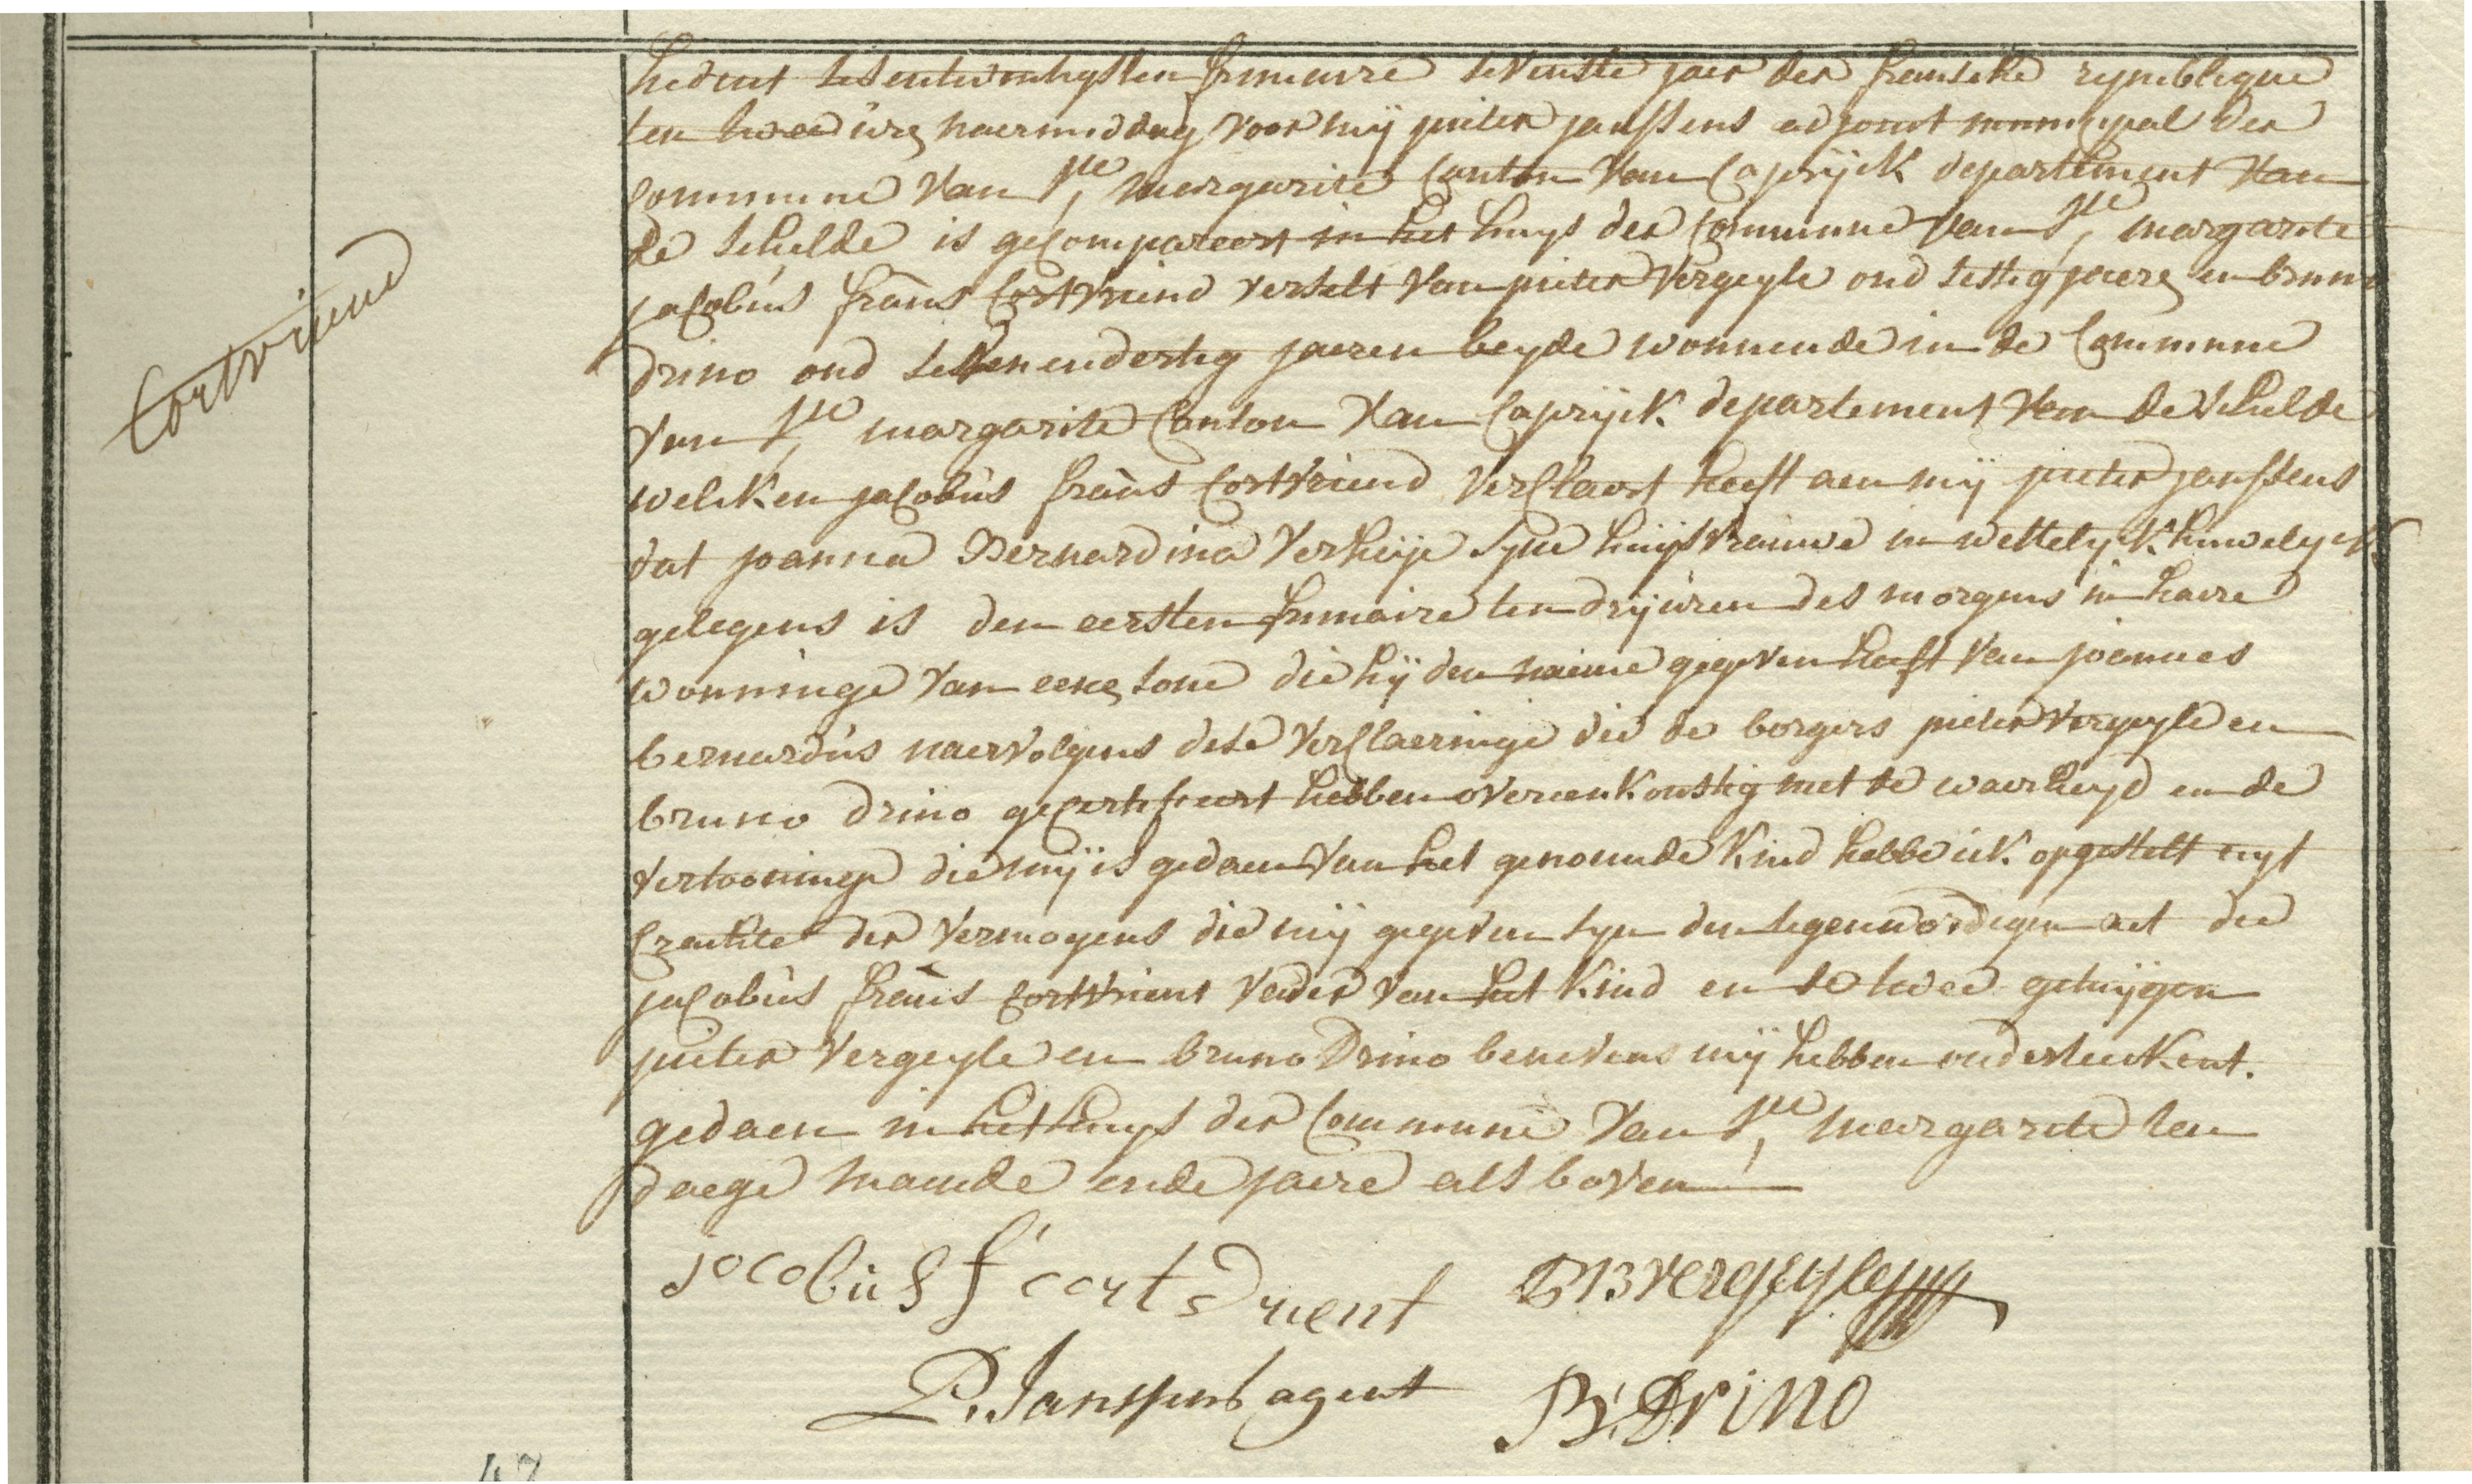 Cortvriend
hedent sesentwintigsten frimaire sevenste jaer der fransche republique
ten twee üren naermiddag voor mij pieter janssens adjoint municipal der
commune van Ste, margarite Canton van Caprijck departement van
de schelde is gecompareert in het huys der commune van Ste, margarite
jacobüs fraüs Cortvriend verselt van pieter vergeyle oud sestig jaeren en bruno
drino oud sessenendertig jaeren beyde wonnende in de Commune
van Ste, margarite Canton van Caprijck departement van de schelde
welcken jacobüs fraüs Cortvriend verclaert heeft aen mij pieter janssens
dat joanna Bernardina Verheije syne huijsvrauwe in wettelyck huwelyck
gelegens is den eersten frimaire ten drij üren des morgens in haere
wonninge van eene sone die hij den naeme gegeven heeft van joannes
bernardüs naervolgens dese verclaeringe die de borgers pieter vergeyle en
bruno drino gecertifieert hebben overeenkomstig met de waerheyd en de
vertooninge die mij is gedaen van het genoemde kind hebbe ick opgestelt uyt
crachte der vermogens die mij gegeven syn den tegenwordigen act die
jacobüs fraüs cortvrient vader van het kind en de twee getuijgen
pieter vergeyle en bruno Drino benevens mij hebben onderteeckent.
gedaen in het huys der Commune van Ste, margarite ten
daege maende ende jaere als boven
jocobüs f cortvrient PB vergeyle
P. Janssens agent B: Drino
47